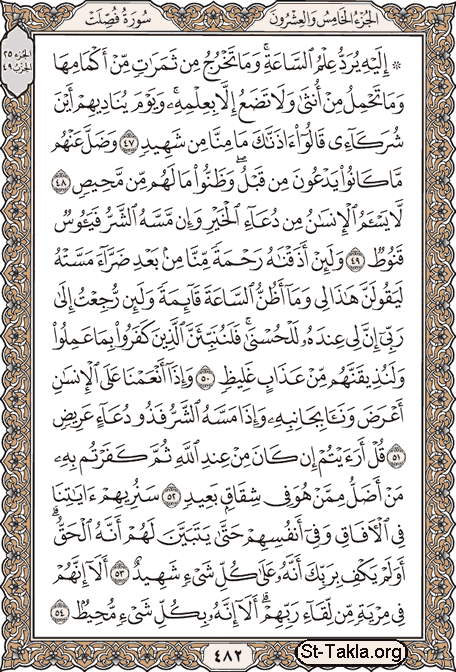 الجزء الخامس والعشرون
سورة فصلت
الجزء ٢٥
الحزب ٤٩
۞ إِلَيْهِ يُرَدُّ عِلْمُ ٱلسَّاعَةِۚ وَمَا تَخْرُجُ مِن ثَمَرَٰتٍ مِّنْ أَكْمَامِهَا
وَمَا تَحْمِلُ مِنْ أُنثَىٰ وَلَا تَضَعُ إِلَّا بِعِلْمِهِۦۚ وَيَوْمَ يُنَادِيهِمْ أَيْنَ
شُرَكَآءِى قَالُوٓا۟ ءَاذَنَّٰكَ مَا مِنَّا مِن شَهِيدٍ ٤٧ وَضَلَّ عَنْهُم
مَّا كَانُوا۟ يَدْعُونَ مِن قَبْلُۖ وَظَنُّوا۟ مَا لَهُم مِّن مَّحِيصٍ ٤٨
لَّا يَسْـَٔمُ ٱلْإِنسَٰنُ مِن دُعَآءِ ٱلْخَيْرِ وَإِن مَّسَّهُ ٱلشَّرُّ فَيَـُٔوسٌ
قَنُوطٌ ٤٩ وَلَئِنْ أَذَقْنَٰهُ رَحْمَةً مِّنَّا مِنۢ بَعْدِ ضَرَّآءَ مَسَّتْهُ
لَيَقُولَنَّ هَٰذَا لِى وَمَآ أَظُنُّ ٱلسَّاعَةَ قَآئِمَةً وَلَئِن رُّجِعْتُ إِلَىٰ
رَبِّىٓ إِنَّ لِى عِندَهُۥ لَلْحُسْنَىٰۚ فَلَنُنَبِّئَنَّ ٱلَّذِينَ كَفَرُوا۟ بِمَا عَمِلُوا۟
وَلَنُذِيقَنَّهُم مِّنْ عَذَابٍ غَلِيظٍ ٥٠ وَإِذَآ أَنْعَمْنَا عَلَى ٱلْإِنسَٰنِ
أَعْرَضَ وَنَـَٔا بِجَانِبِهِۦ وَإِذَا مَسَّهُ ٱلشَّرُّ فَذُو دُعَآءٍ عَرِيضٍ
٥١ قُلْ أَرَءَيْتُمْ إِن كَانَ مِنْ عِندِ ٱللَّهِ ثُمَّ كَفَرْتُم بِهِۦ
مَنْ أَضَلُّ مِمَّنْ هُوَ فِى شِقَاقٍۭ بَعِيدٍ ٥٢ سَنُرِيهِمْ ءَايَٰتِنَا
فِى ٱلْءَافَاقِ وَفِىٓ أَنفُسِهِمْ حَتَّىٰ يَتَبَيَّنَ لَهُمْ أَنَّهُ ٱلْحَقُّۗ
أَوَلَمْ يَكْفِ بِرَبِّكَ أَنَّهُۥ عَلَىٰ كُلِّ شَىْءٍ شَهِيدٌ ٥٣ أَلَآ إِنَّهُمْ
فِى مِرْيَةٍ مِّن لِّقَآءِ رَبِّهِمْۗ أَلَآ إِنَّهُۥ بِكُلِّ شَىْءٍ مُّحِيطٌۢ ٥٤
٤٨٢
St-Takla.org